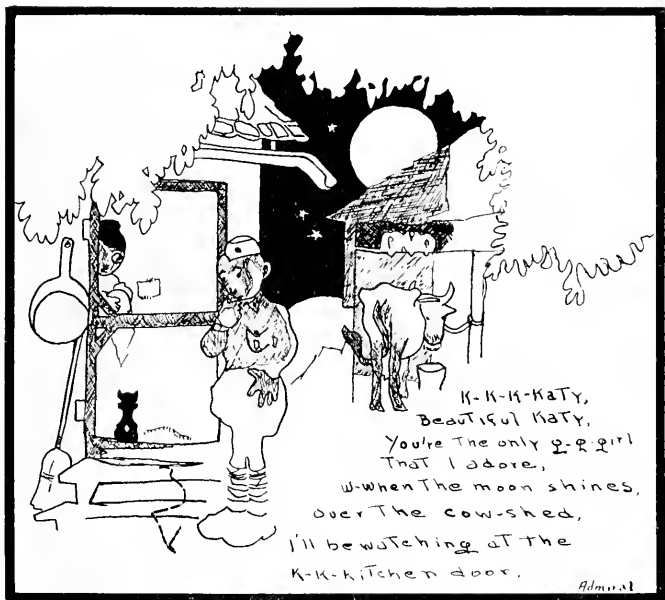 K-K-K-Katy,
Beautiful Katy,
You're the only g-g-girl
That I adore,
w-when the moon shines,
over the cow-shed,
I'll be watching at the
K-K-kitchen door.